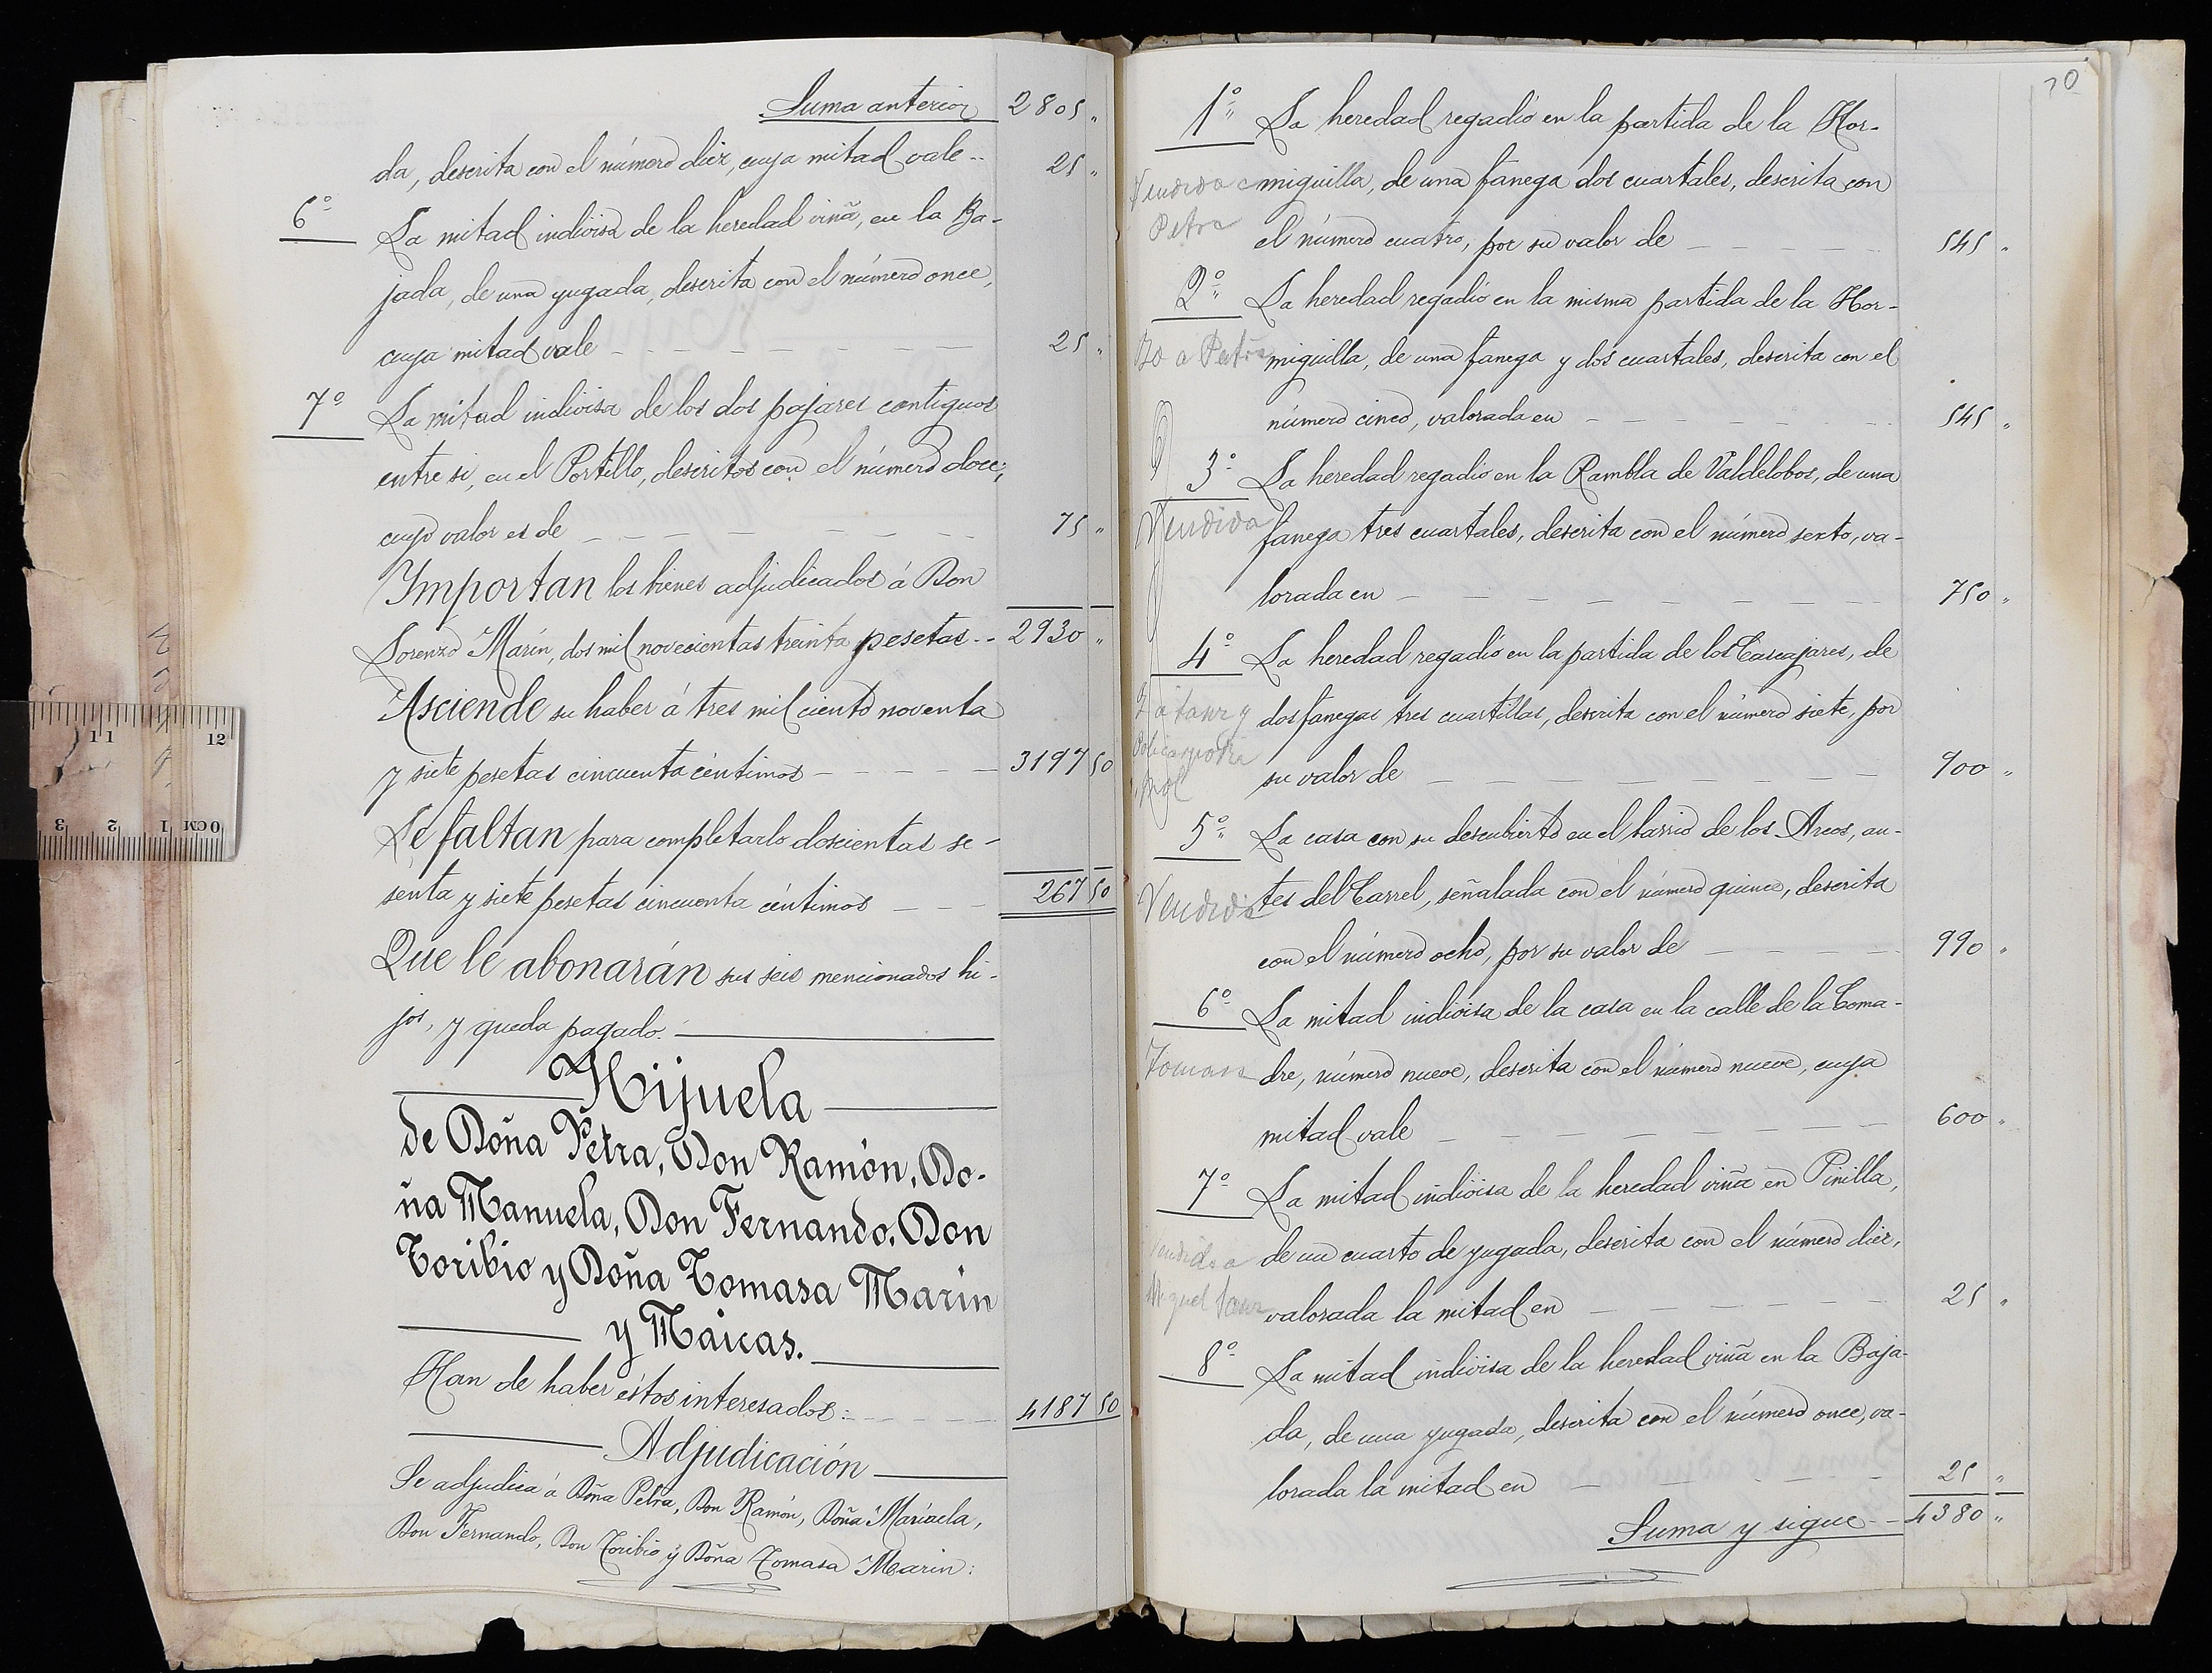 Suma anterior 2805 "
da, descrita con el número diez, cuya mitad vale -- 25 "
6º La mitad indivisa de la heredad viña, en la Ba-
jada, de una yugada, descrita con el número once,
cuya mitad vale - - - - - - - 25 "
7º La mitad indivisa de los dos pajares contiguos
entre si, en el Portillo, descritos con el número doce;
cuyo valor es de - - - - - - - 75 "
Importan los bienes adjudicados á Don
Lorenzo Marín, dos mil novecientas treinta pesetas -- 2930 "
Asciende su haber á tres mil ciento noventa
y siete pesetas cincuenta céntimos - - - - - 3197 50
Le faltan para completarlo doscientas se-
senta y siete pesetas cincuenta céntimos - - - 267 50
Que le abonarán sus seis mencionados hi-
jos, y queda pagado.
Hijuela
de Doña Petra, Don Ramón, Do-
ña Manuela, Don Fernando, Don
Toribio y Doña Tomasa Marín
y Maicas.
Han de haber éstos interesados: - - - - - 4187 50
Adjudicación
Se adjudica á Doña Petra, Don Ramón, Doña Manuela,
Don Fernando, Don Toribio y Doña Tomasa Marín:
70
1º La heredad regadío en la partida de la Hor-
Vendida miguilla, de una fanega dos cuartales, descrita con
Petra el número cuatro, por su valor de - - - - 545 "
2º La heredad regadío en la misma partida de la Hor-
a Petra miguilla, de una fanega y dos cuartales, descrita con el
número cinco, valorada en - - - - - - - 545 "
3º La heredad regadío en la Rambla de Valdelobos, de una
Vendida fanega tres cuartales, descrita con el número sexto, va-
lorada en - - - - - - - - 750 "
4º La heredad regadío en la partida de los Cascajares, de
dos fanegas tres cuartillas, descrita con el número siete, por
su valor de - - - - - - - 900 "
5º La casa con su descubierto en el barrio de los Arcos, an-
Vendida tes del Carrel, señalada con el número quince, descrita
con el número ocho, por su valor de - - - - 990 "
6º La mitad indivisa de la casa en la calle de la Coma-
Tomasa dre, número nueve, descrita con el número nueve, cuya
mitad vale - - - - - - - - 600 "
7º La mitad indivisa de la heredad viña en Pinilla,
Vendida de un cuarto de yugada, descrita con el número diez,
Miguel valorada la mitad en - - - - - 25 "
8º La mitad indivisa de la heredad viña en la Baja-
da, de una yugada, descrita con el número once, va-
lorada la mitad en - - - - - 25 "
Suma y sigue -- 4380 "
11 12
3 2 1 0CM